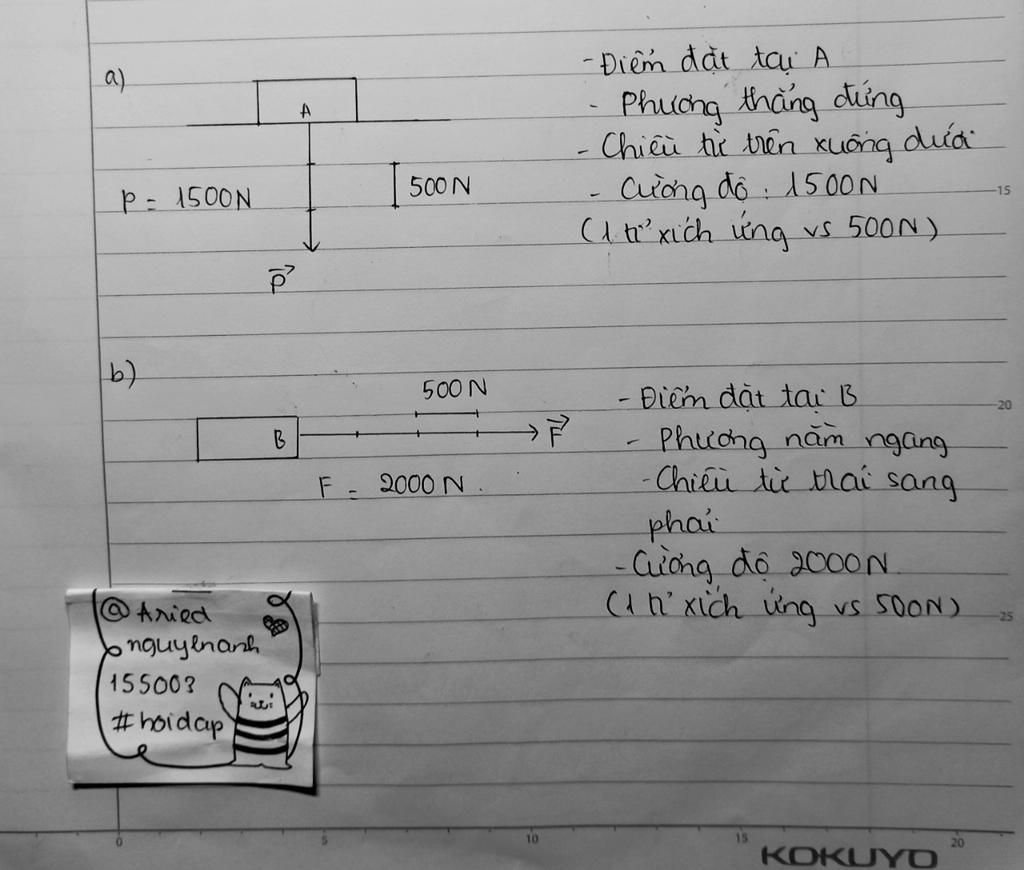 a)
A
P = 1500N
500N
P
- Điểm đặt tại A
- Phương thẳng đứng
- Chiều từ trên xuống dưới
- Cường độ : 1500N
(1 tỉ xích ứng vs 500N)
15
b)
500N
B
F
F = 2000N.
- Điểm đặt tại B
- Phương nằm ngang
- Chiều từ trái sang
phải
- Cường độ 2000N
(1 tỉ xích ứng vs 500N)
20
25
@Aried
nguyenanh
155003
#hoidap
0 5 10 15 20
KOKUYO